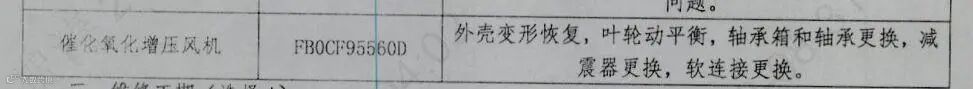 问题。
催化氧化增压风机
FB0CF95560D
外壳变形恢复，叶轮动平衡，轴承箱和轴承更换，减
震器更换，软连接更换。